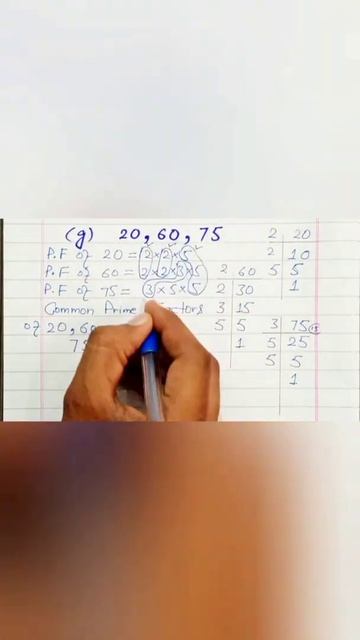 (g) 20, 60, 75
P.F of 20 = 2×2×5
P.F of 60 = 2×2×3×5
P.F of 75 = 3×5×5
Common Prime
of 20, 60
2 20
2 10
5 5
1
2 60
2 30
3 15
5 5
1
3 75
5 25
5 5
1